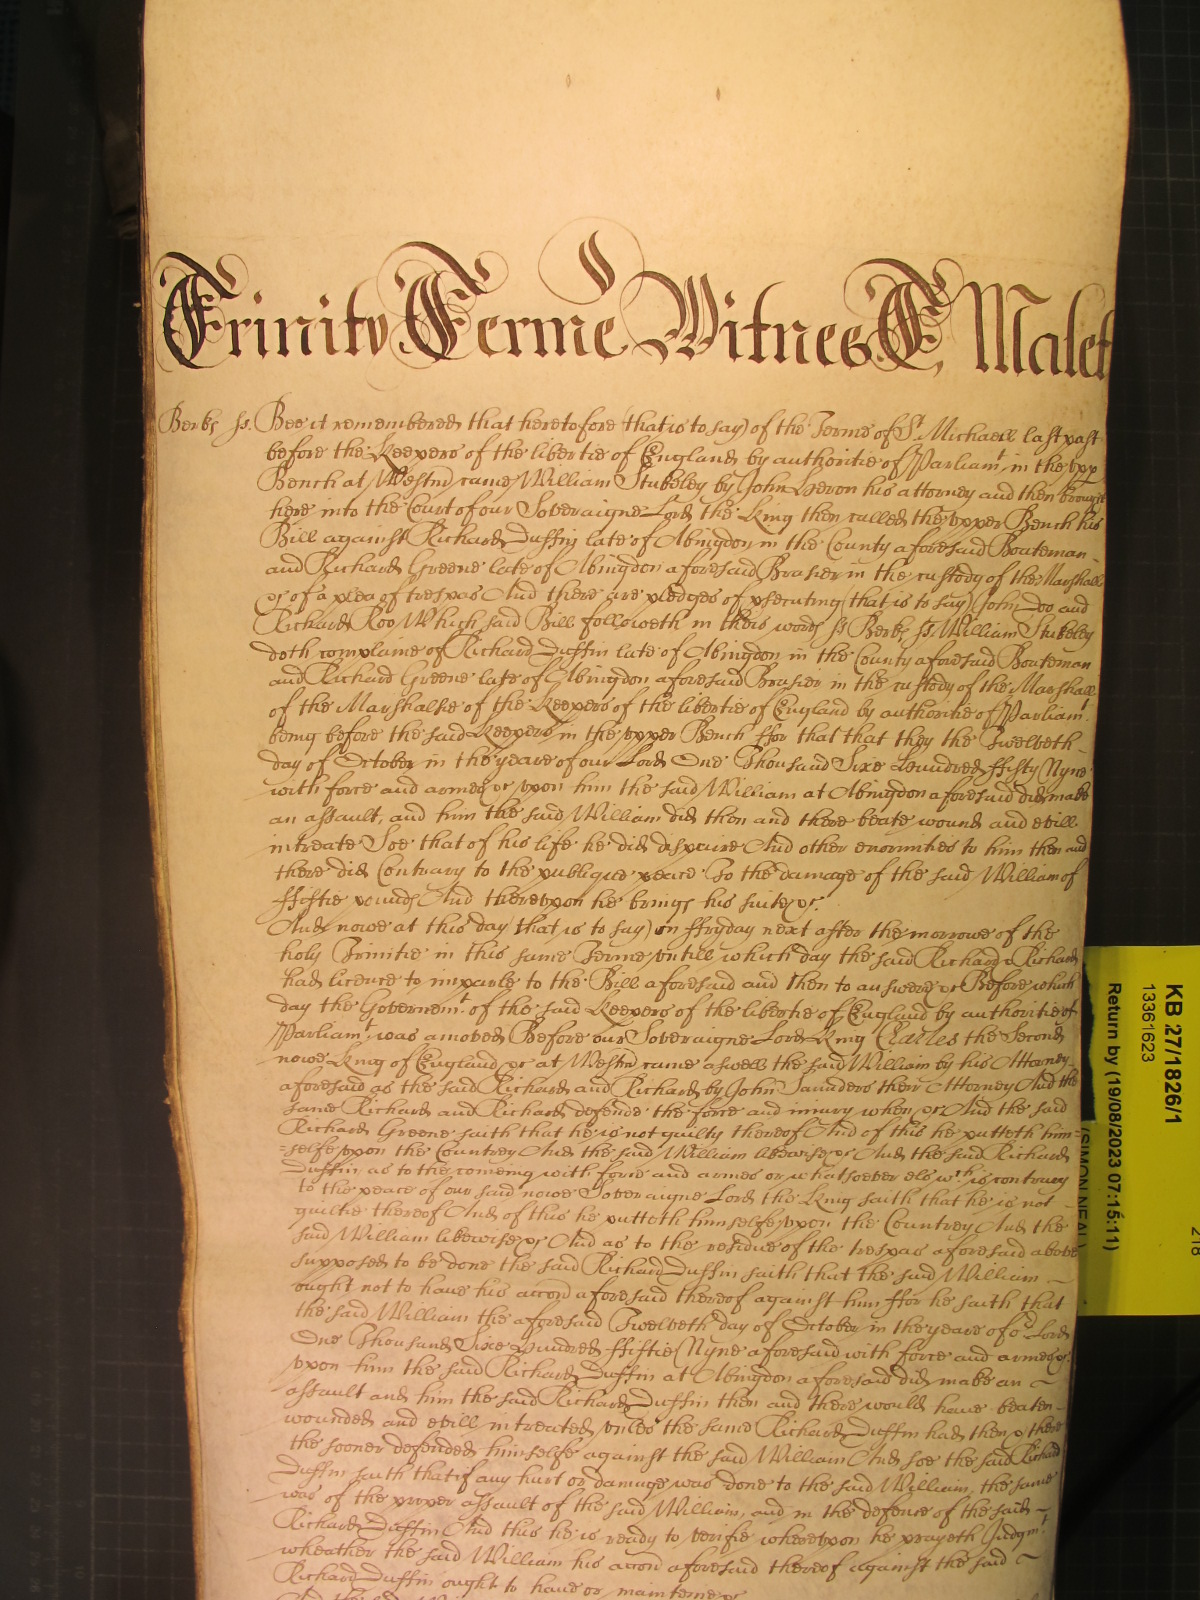 Trinity Terme Witnes T Malet
Berks ss. Bee it remembered that heretofore (that is to say) of the Terme of St Michaell last past
before the Keepers of the libertie of England by authoritie of Parliamt in the vpp
Bench at Westm came William Stukeley by John Heron his attorney and then brought
here into the Court of our Soveraigne Lord the King then called the vpper Bench his
Bill against Richard Duffin late of Abingdon in the County aforesaid Boateman
and Richard Greene late of Abingdon aforesaid Brasier in the custody of the Marshall
&c of a plea of trespas And there are pledges of psecuting (that is to say) John Doo and
Richard Roo Which said Bill followeth in theis words ss Berks ss. William Stukeley
doth complaine of Richard Duffin late of Abingdon in the County aforesaid Boateman
and Richard Greene late of Abingdon aforesaid Brasier in the custody of the Marshall
of the Marshalse of the Keepers of the libertie of England by authoritie of Parliamt
being before the said Keepers in the vpper Bench ffor that that they the Twelveth
day of October in the yeare of our Lord One Thousand Sixe Hundred ffifty Nyne
with force and armes &c vpon him the said William at Abingdon aforesaid did make
an assault, and him the said William did then and there beate wound and evill
intreate Soe that of his life he did dispaire And other enormities to him then and
there did Contrary to the publique peace To the damage of the said William of
ffiftie pounds And therevpon he brings his suite &c.
And nowe at this day (that is to say) on ffryday next after the morrowe of the
holy Trinitie in this same Terme vntill which day the said Richard & Richard
had licence to imparle to the Bill aforesaid and then to answere &c Before which
day the Governemt of the said Keepers of the libertie of England by authoritie of
Parliamt was amoved Before our Soveraigne Lord King Charles the Second
nowe King of England &c at Westm came aswell the said William by his Attorney
aforesaid as the said Richard and Richard by John Saunders their Attorney And the
same Richard and Richard defende the force and iniury when &c And the said
Richard Greene saith that he is not guilty thereof And of this he putteth him=
=selfe vpon the Countrey And the said William likewise &c And the said Richard
Duffin as to the comeing with force and armes or whatsoever els wch is contrary
to the peace of our said nowe Soveraigne Lord the King saith that he is not
guiltie thereof And of this he putteth himselfe vpon the Countrey And the
said William likewise &c And as to the residue of the trespas aforesaid above
supposed to be done the said Richard Duffin saith that the said William
ought not to haue his accon aforesaid thereof against him ffor he saith that
the said William the aforesaid Twelveth day of October in the yeare of or Lord
One Thousand Sixe Hundred ffiftie Nyne aforesaid with force and armes &c
vpon him the said Richard Duffin at Abingdon aforesaid did make an
assault and him the said Richard Duffin then and there would haue beaten
wounded and evill intreated vnles the same Richard Duffin had then & there
the sooner defended himselfe against the said William And soe the said Richard
Duffin saith that if any hurt or damage was done to the said William, the same
was of the proper assault of the said William, and in the defence of the said
Richard Duffin And this he is ready to verifie wherevpon he prayeth Judgmt
wheather the said William his accon aforesaid thereof against the said
Richard Duffin ought to haue or mainteine &c
KB 27/1826/1
13361623
Return by (19/08/2023 07:15:11)
(SIMON NEAL)
218